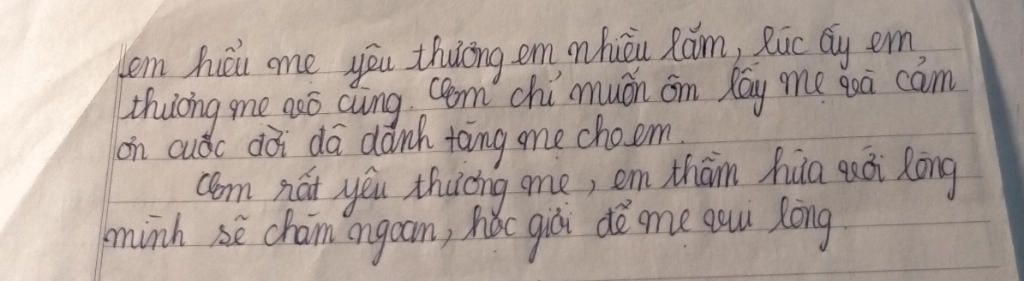 em hiểu mẹ yêu thương em nhiều lắm, lúc ấy em
thương mẹ vô cùng. Em chỉ muốn ôm lấy mẹ và cảm
ơn cuộc đời đã dành tặng mẹ cho em.
Em rất yêu thương mẹ, em thầm hứa với lòng
mình sẽ chăm ngoan, học giỏi để mẹ vui lòng.